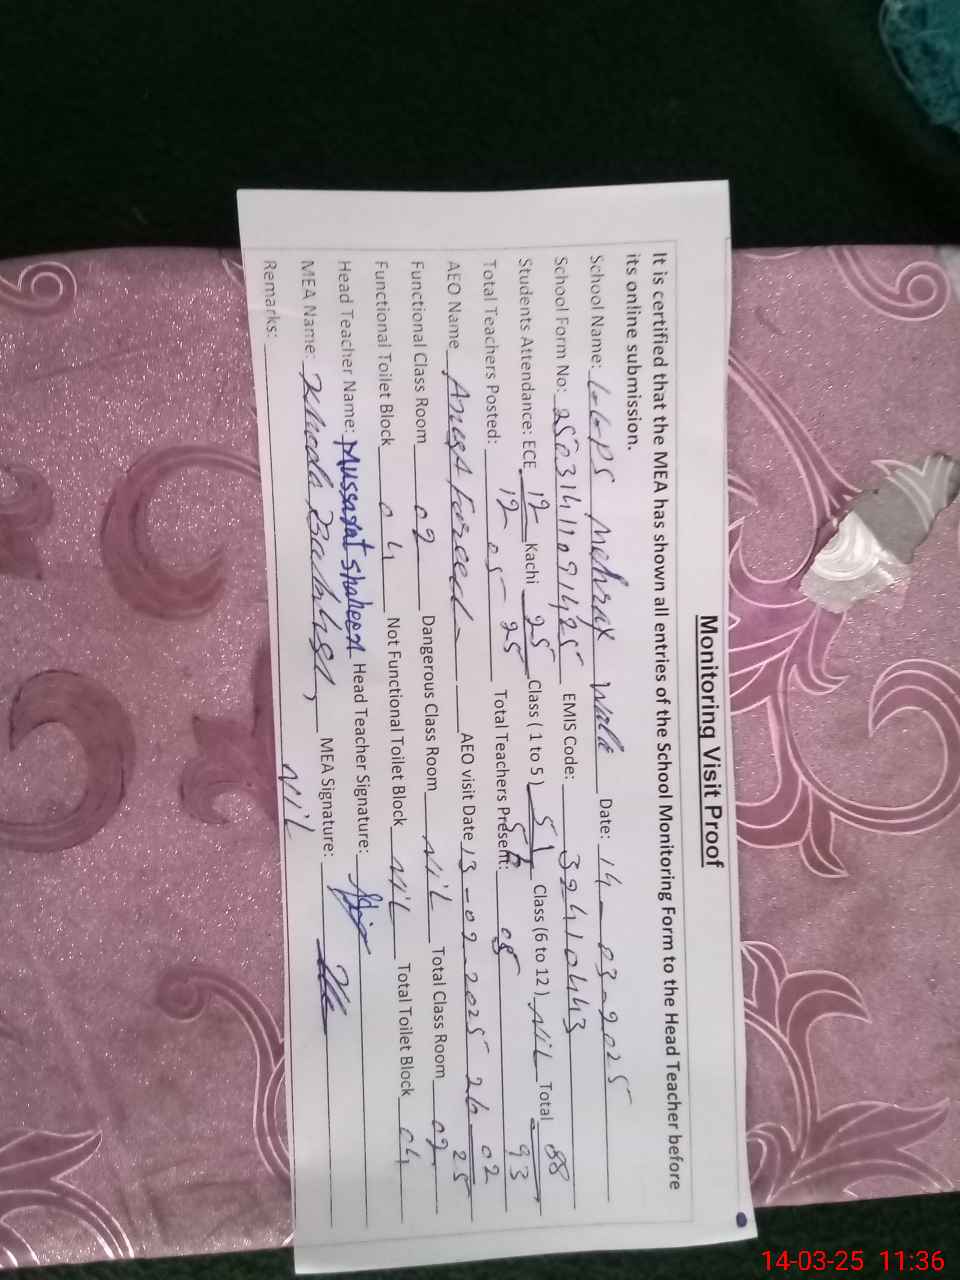 Monitoring Visit Proof
It is certified that the MEA has shown all entries of the School Monitoring Form to the Head Teacher before
its online submission.
School Name: Mehrak Wala Date: 14-03-2025
School Form No: EMIS Code: 32410443
Students Attendance: ECE 12 Kachi 25 Class ( 1 to 5 ) 51 Class (6 to 12) Nil Total 88
12 25 56 93
Total Teachers Posted: 05 Total Teachers Present: 05
AEO Name AEO visit Date 13-02-2025 26 02 25
Functional Class Room 02 Dangerous Class Room Nil Total Class Room 02
Functional Toilet Block 04 Not Functional Toilet Block Nil Total Toilet Block 04
Head Teacher Name: Mussarat Shaheen Head Teacher Signature:
MEA Name: Khuda Bakhsh MEA Signature:
Remarks: Nil
14-03-25 11:36